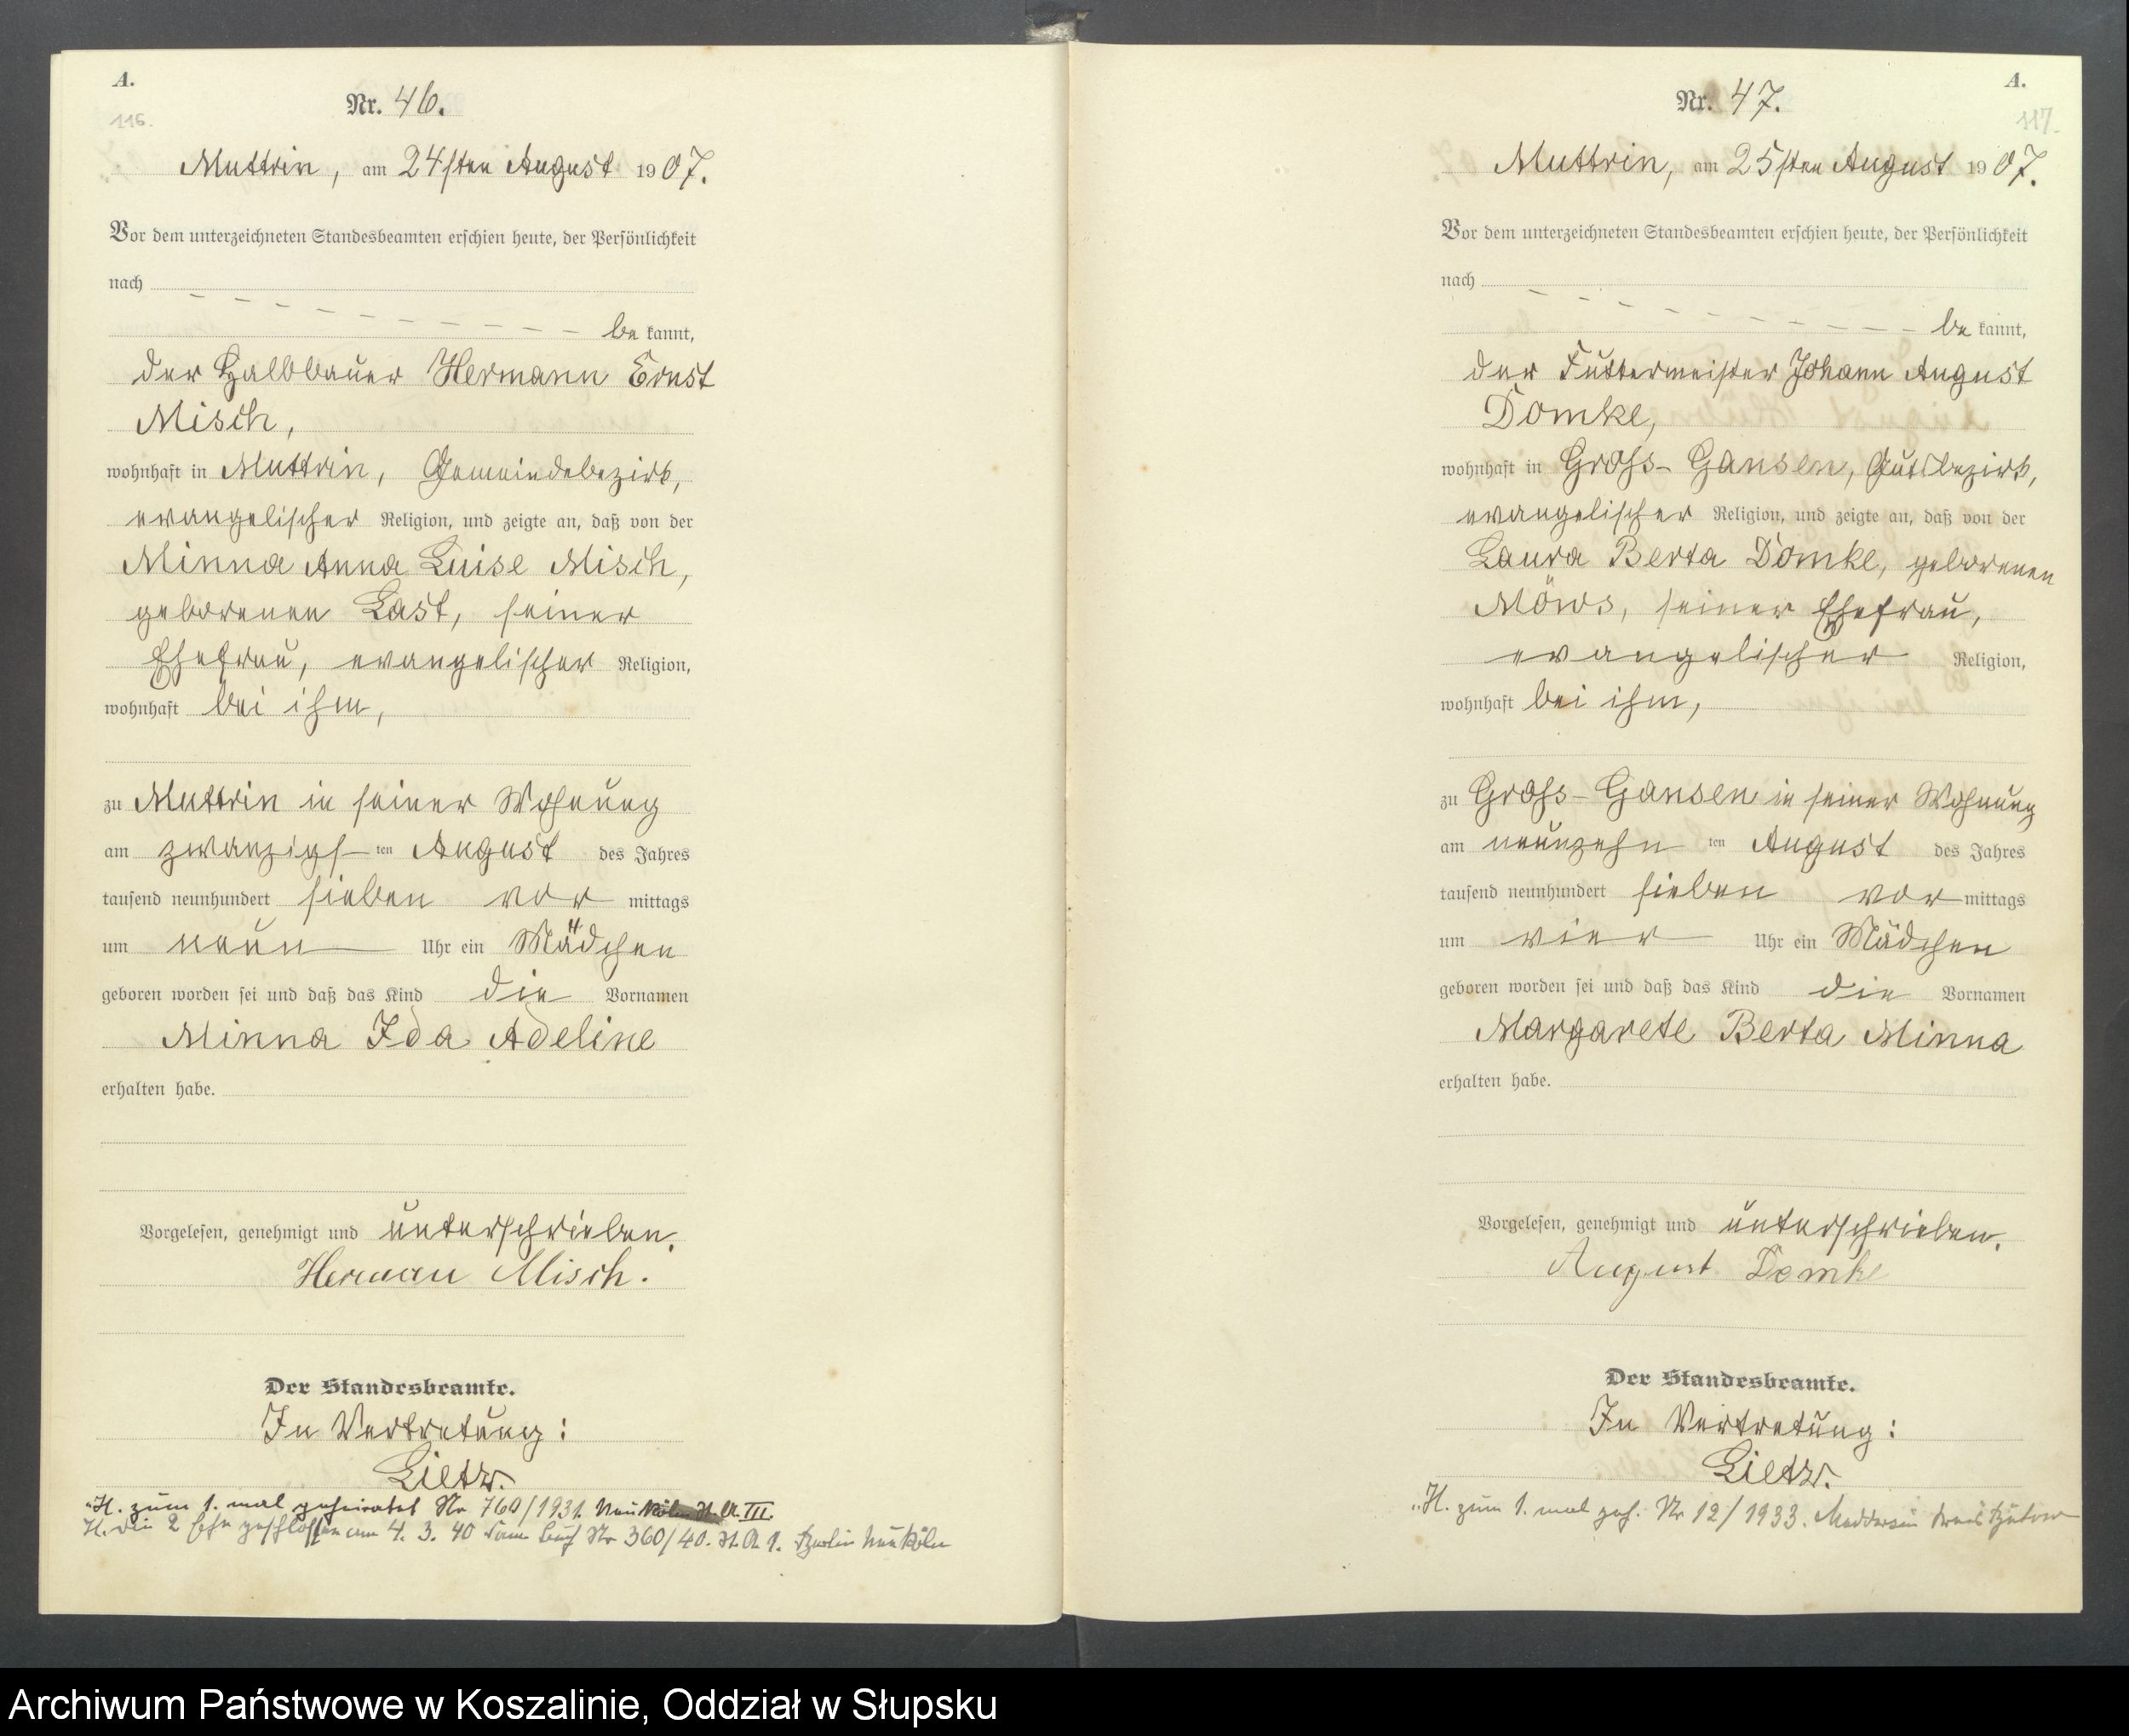 A.
116.
Nr. 46.
Muttrin, am 24sten August 1907.
Vor dem unterzeichneten Standesbeamten erschien heute, der Persönlichkeit
nach
be kannt,
der Halbbauer Hermann Ernst
Misch,
wohnhaft in Muttrin, Gemeindebezirk,
evangelischer Religion, und zeigte an, daß von der
Minna Anna Luise Misch,
geborenen Last, seiner
Ehefrau, evangelischer Religion,
wohnhaft bei ihm,
zu Muttrin in seiner Wohnung
am zwanzigs ten August des Jahres
tausend neunhundert sieben vor mittags
um neun Uhr ein Mädchen
geboren worden sei und daß das Kind die Vornamen
Minna Ida Adeline
erhalten habe.
Vorgelesen, genehmigt und unterschrieben.
Herman Misch.
Der Standesbeamte.
In Vertretung:
Lietzw.
"H. zum 1. mal geheiratet Nr 760/1931. Neukölln St. A. III.
H. die 2 Ehe geschlossen am 4. 3. 40 Nr 360/40. St. A 1. Berlin Neukölln
A.
117.
Nr. 47.
Muttrin, am 25sten August 1907.
Vor dem unterzeichneten Standesbeamten erschien heute, der Persönlichkeit
nach
be kannt,
der Futtermeister Johann August
Domke,
wohnhaft in Gross-Gansen, Gutsbezirk,
evangelischer Religion, und zeigte an, daß von der
Laura Berta Domke, geborenen
Möws, seiner Ehefrau,
evangelischer Religion,
wohnhaft bei ihm,
zu Gross-Gansen in seiner Wohnung
am neunzehn ten August des Jahres
tausend neunhundert sieben vor mittags
um vier Uhr ein Mädchen
geboren worden sei und daß das Kind die Vornamen
Margarete Berta Minna
erhalten habe.
Vorgelesen, genehmigt und unterschrieben.
August Domke
Der Standesbeamte.
In Vertretung:
Lietzw.
"H. zum 1. mal geh. Nr 12/1933. Kreis Bütow
Archiwum Państwowe w Koszalinie, Oddział w Słupsku